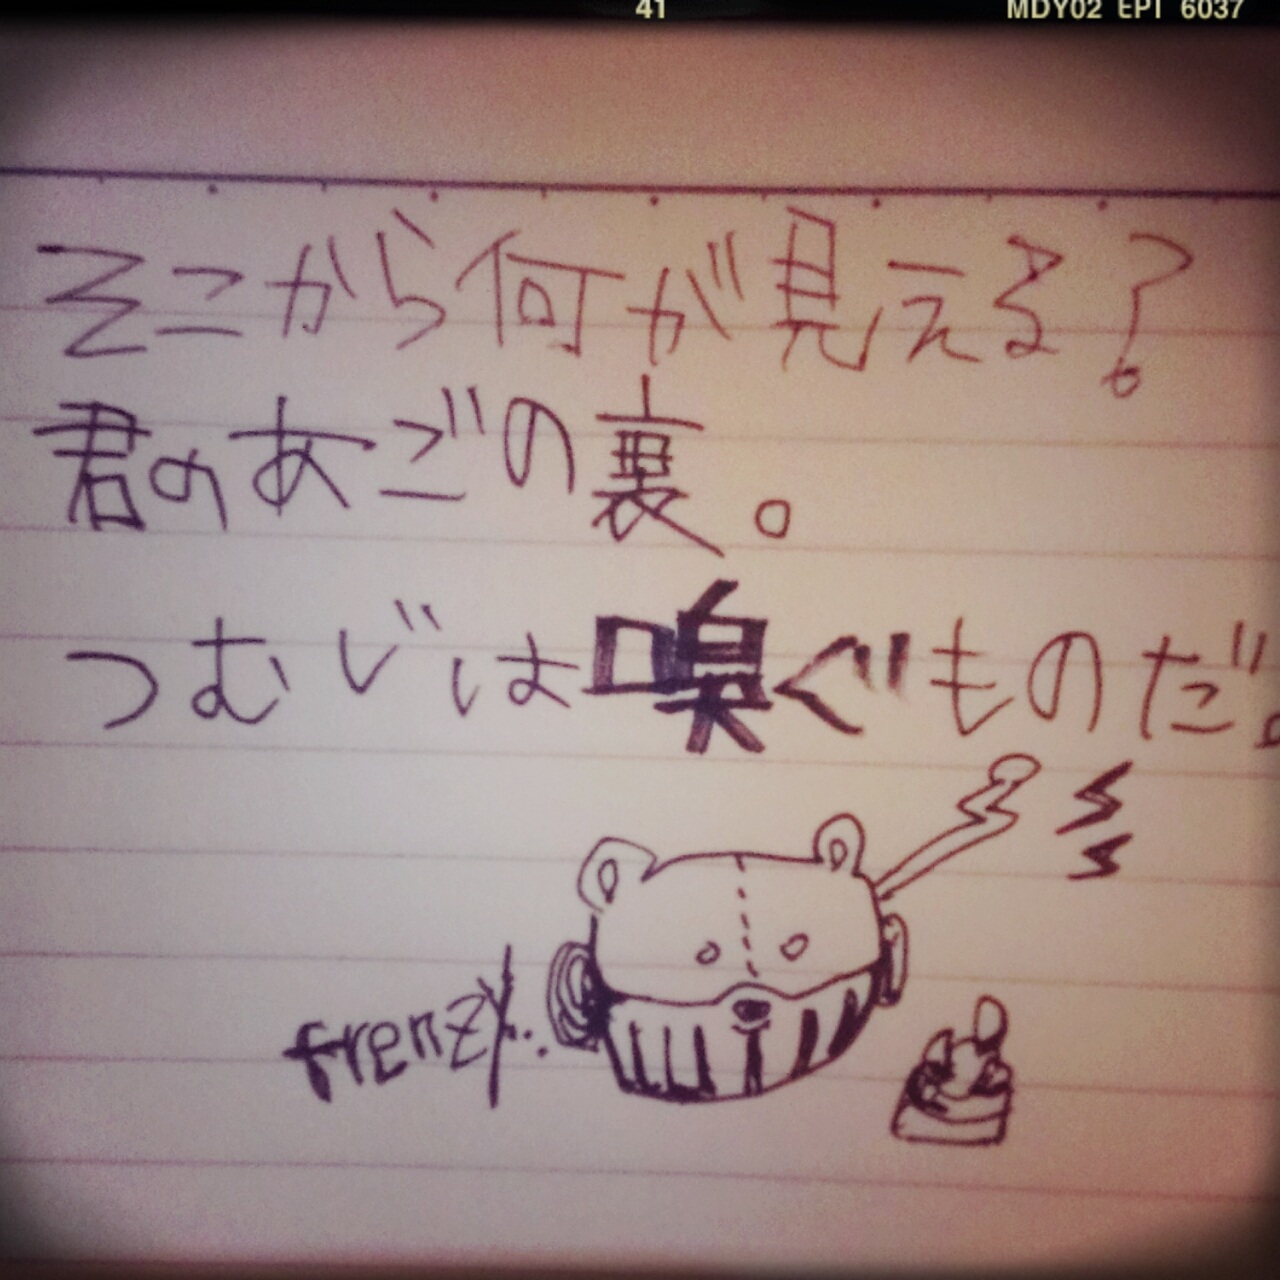 41 MDY02 EPT 6037
そこから何が見える?
君のあごの裏。
つむじは嗅ぐものだ。
frenzy...